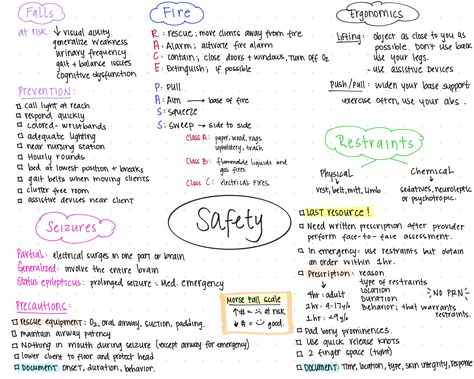 Falls
at risk: ↓ visual acuity
generalize weakness
urinary frequency
gait + balance issues
cognitive dysfunction
Prevention:
call light at reach
respond quickly
colored- wristbands
adequate lighting
near nursing station
Hourly rounds
bed at lowest position + breaks
gait belts when moving clients
clutter free room
assistive devices near client
Fire
R: rescue; move clients away from fire.
A: Alarm; activate fire alarm
C: contain; close doors + windows, turn off O2
E: Extinguish; if possible
P: Pull
A: Aim → base of fire
S: Squeeze
S: sweep → side to side
Class A: paper, wood, rags
upholstery, trash
Class B: flammable liquids and
gas fires
Class C: electrical FIRES.
Ergonomics
Lifting: object as close to you as
possible. Don't use back
use your legs.
- use assistive devices
Push/Pull: widen your base support
exercise often, use your abs.
Restraints
Physical
vest, belt, mitt, limb
Chemical
sedatives, neuroleptic
or psychotropic.
last resource!
Need written prescription after provider
perform face-to-face assessment.
In emergency: use restraints but obtain
an order within 1hr.
Prescription: reason
type of restraints
location
Duration
Behavior; that warrants
restraints.
4hr: adult
2hr: 9-17y/o
1hr: <9 y/o
NO PRN
Pad bony prominences.
Use quick release knots
2 finger space (tight)
Document: time, location, type, skin integrity, response
Safety
Seizures
Partial: electrical surges in one part or brain
Generalized: involve the entire brain
Status epilepticus: prolonged seizure: Med. emergency
Precautions:
rescue equipment: O2, oral airway, suction, padding.
maintain airway patency
Nothing in mouth during seizure (except airway for emergency)
lower client to floor and protect head
Document onset, duration, behavior.
Morse fall scale
↑# = at risk
↓# = good.